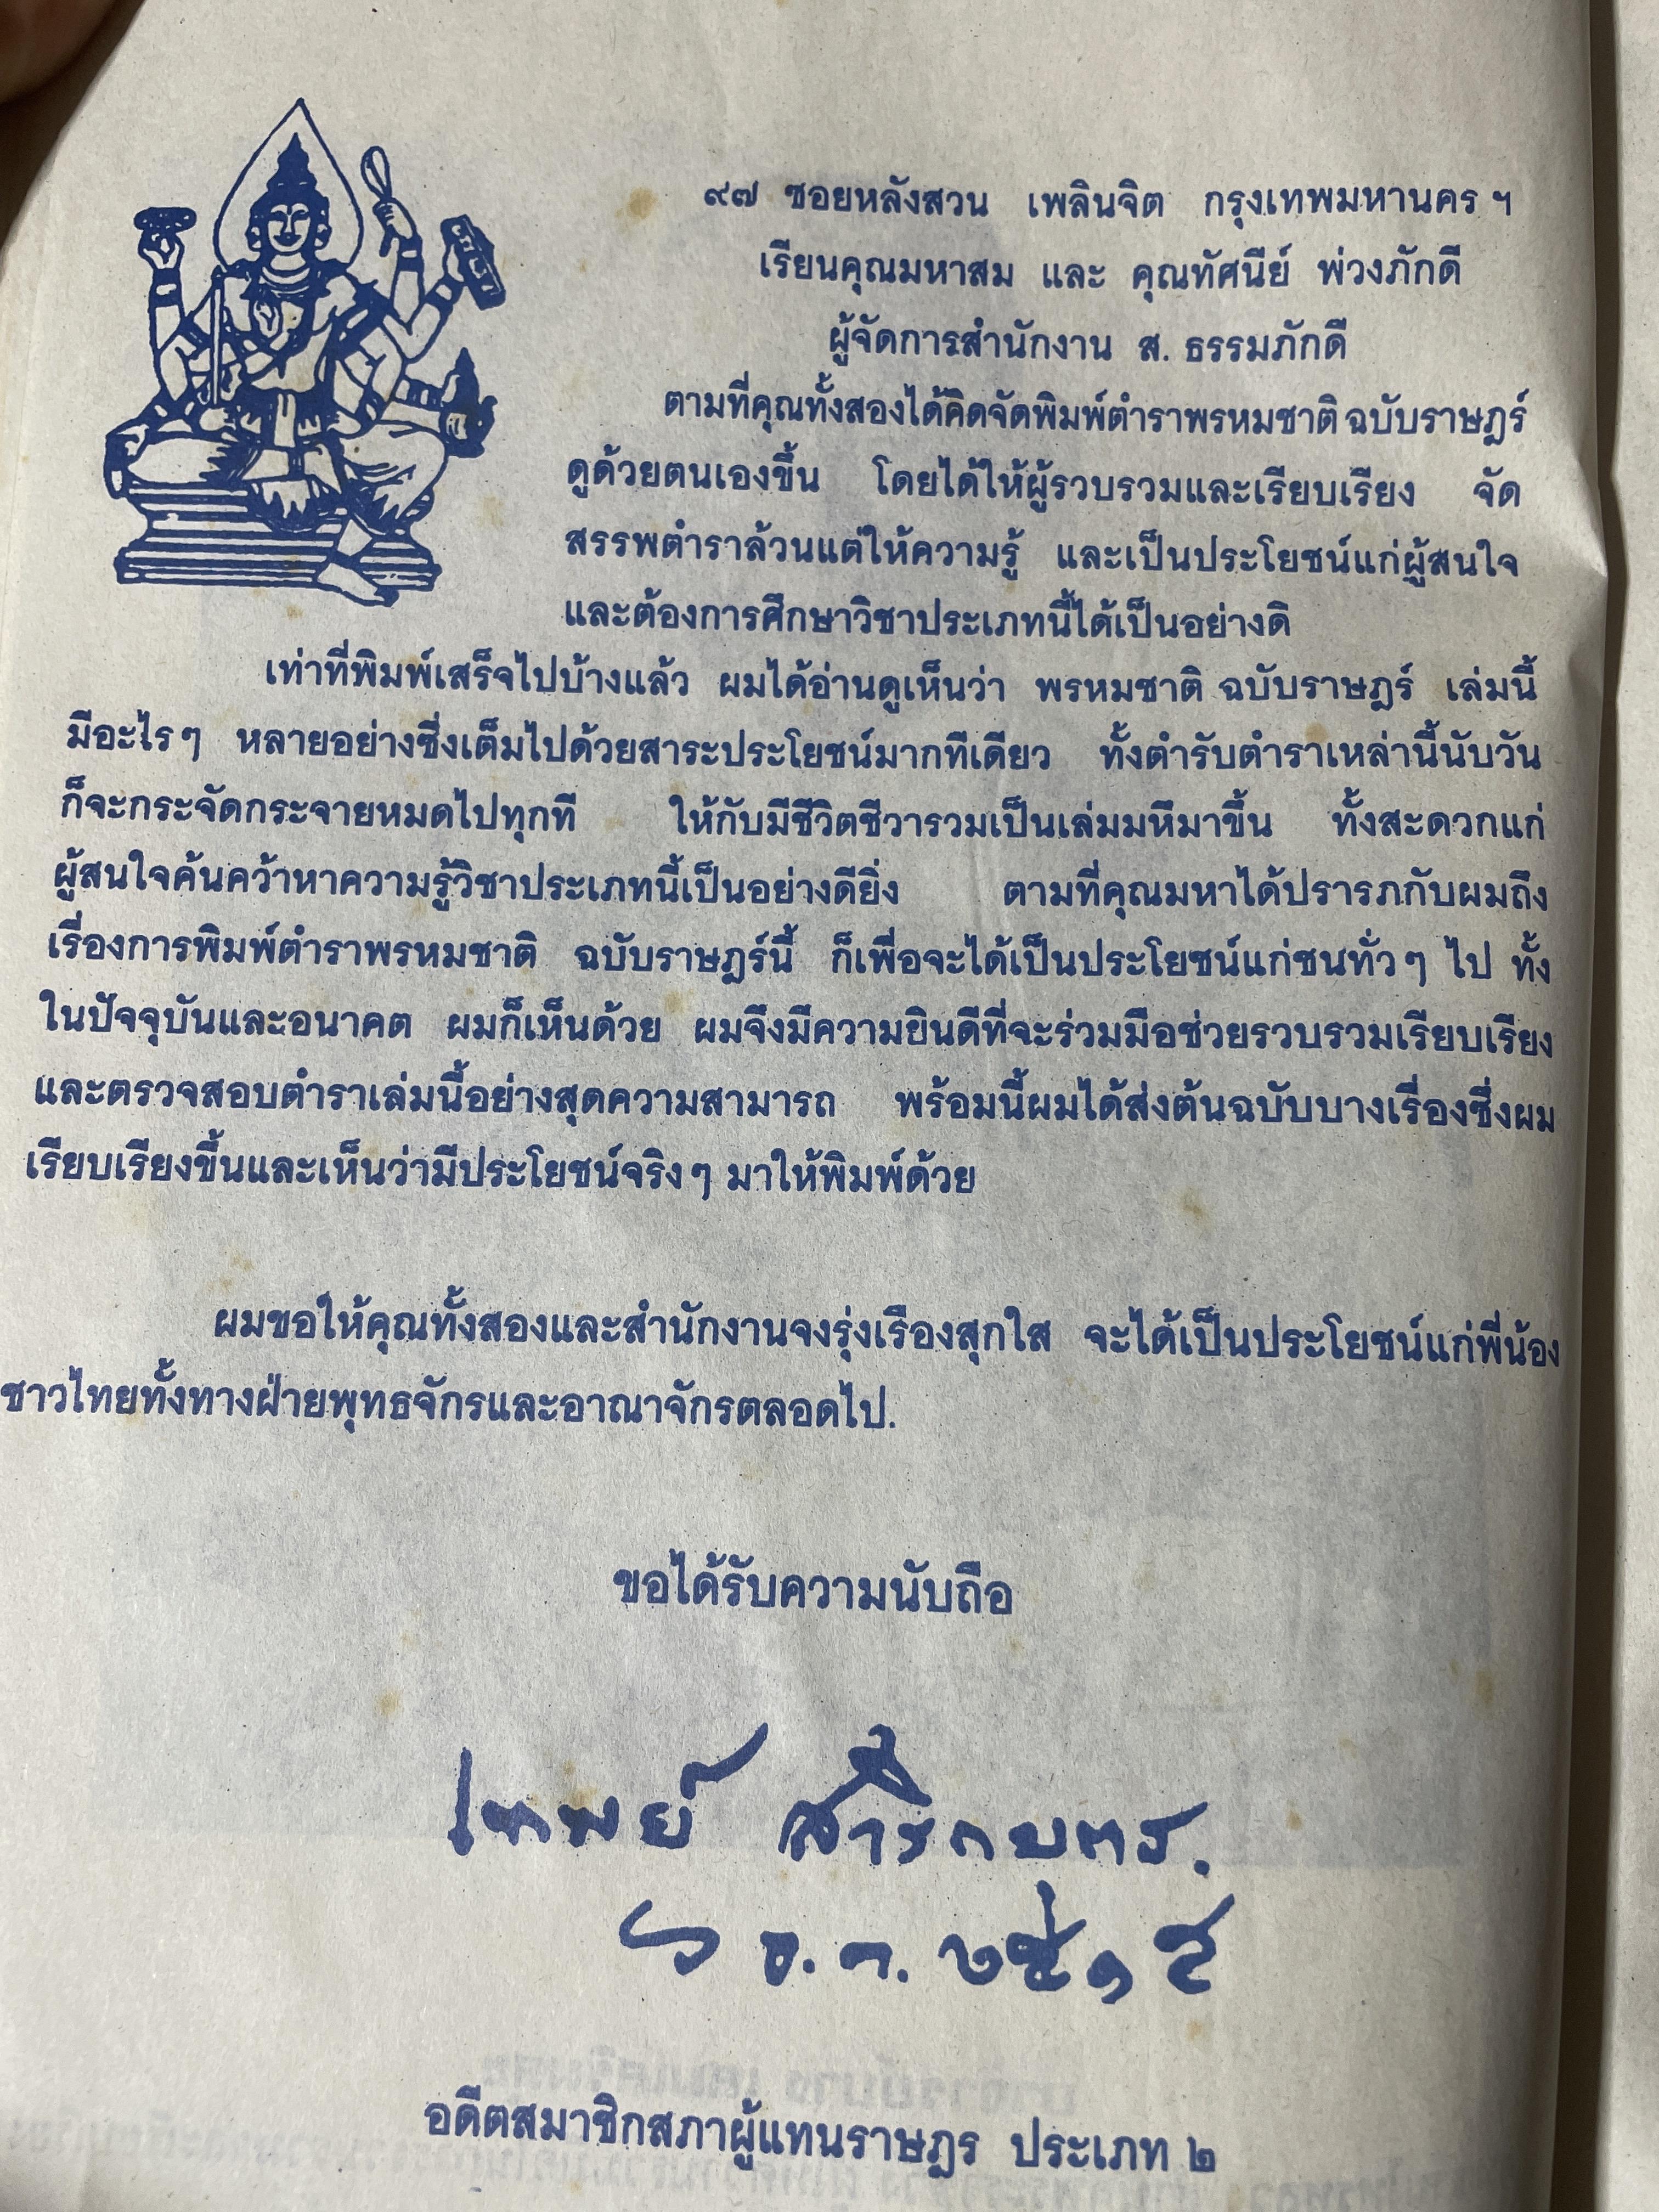 ๙๗ ซอยหลังสวน เพลินจิต กรุงเทพมหานคร ฯ
เรียนคุณมหาสม และ คุณทัศนีย์ พ่วงภักดี
ผู้จัดการสำนักงาน ส. ธรรมภักดี
ตามที่คุณทั้งสองได้คิดจัดพิมพ์ตำราพรหมชาติ ฉบับราษฎร์
ดูด้วยตนเองขึ้น โดยได้ให้ผู้รวบรวมและเรียบเรียง จัด
สรรพตำราล้วนแต่ให้ความรู้ และเป็นประโยชน์แก่ผู้สนใจ
และต้องการศึกษาวิชาประเภทนี้ได้เป็นอย่างดิ
เท่าที่พิมพ์เสร็จไปบ้างแล้ว ผมได้อ่านดูเห็นว่า พรหมชาติ ฉบับราษฎร์ เล่มนี้
มีอะไรๆ หลายอย่างซึ่งเต็มไปด้วยสาระประโยชน์มากทีเดียว ทั้งตำรับตำราเหล่านี้นับวัน
ก็จะกระจัดกระจายหมดไปทุกที ให้กับมีชีวิตชีวารวมเป็นเล่มมหึมาขึ้น ทั้งสะดวกแก่
ผู้สนใจค้นคว้าหาความรู้วิชาประเภทนี้เป็นอย่างดียิ่ง ตามที่คุณมหาได้ปรารภกับผมถึง
เรื่องการพิมพ์ตำราพรหมชาติ ฉบับราษฎร์นี้ ก็เพื่อจะได้เป็นประโยชน์แก่ชนทั่วๆ ไป ทั้ง
ในปัจจุบันและอนาคต ผมก็เห็นด้วย ผมจึงมีความยินดีที่จะร่วมมือช่วยรวบรวมเรียบเรียง
และตรวจสอบตำราเล่มนี้อย่างสุดความสามารถ พร้อมนี้ผมได้ส่งต้นฉบับบางเรื่องซึ่งผม
เรียบเรียงขึ้นและเห็นว่ามีประโยชน์จริงๆ มาให้พิมพ์ด้วย
ผมขอให้คุณทั้งสองและสำนักงานจงรุ่งเรืองสุกใส จะได้เป็นประโยชน์แก่พี่น้อง
ชาวไทยทั้งทางฝ่ายพุทธจักรและอาณาจักรตลอดไป.
ขอได้รับความนับถือ
เทพย์ สาริกบุตร.
อดีตสมาชิกสภาผู้แทนราษฎร ประเภท ๒